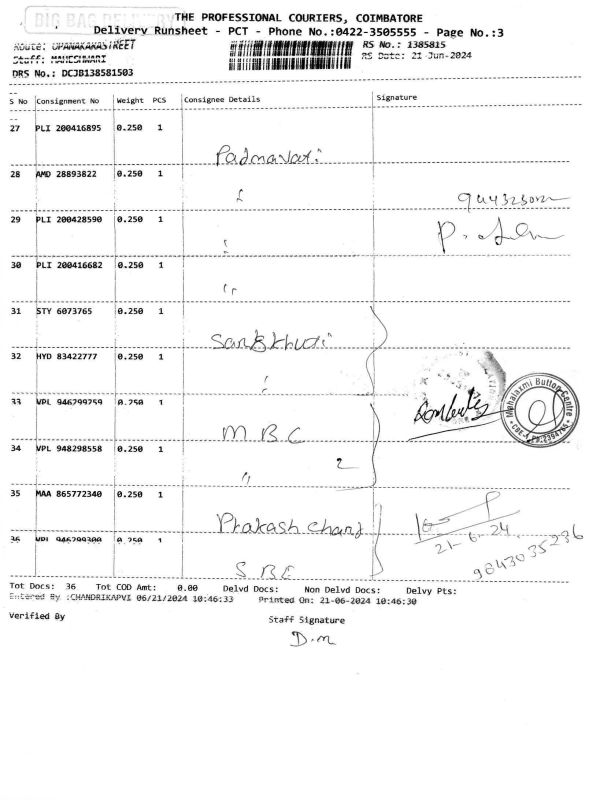 BIG BAG DELIVERY
THE PROFESSIONAL COURIERS, COIMBATORE
Delivery Runsheet - PCT - Phone No.:0422-3505555 - Page No.:3
Route: OPANAKARASTREET
RS No.: 1385815
Staff: MAHESHWARI
RS Date: 21-Jun-2024
DRS No.: DCJB138581503
S No Consignment No Weight PCS Consignee Details Signature
27 PLI 200416895 0.250 1 Padmavati
28 AMD 28893822 0.250 1
29 PLI 200428590 0.250 1
30 PLI 200416682 0.250 1
31 STY 6073765 0.250 1
32 HYD 83422777 0.250 1
Mahalaxmi Button Centre
33 VPL 946299259 0.250 1 M B C
34 VPL 948298558 0.250 1 " 2
35 MAA 865772340 0.250 1 Prakash Chand
21-6-24
36 VPL 946299300 0.250 1 S B C
9843035236
Tot Docs: 36 Tot COD Amt: 0.00 Delvd Docs: Non Delvd Docs: Delvy Pts:
Entered By :CHANDRIKAPVI 06/21/2024 10:46:33 Printed On: 21-06-2024 10:46:30
Verified By Staff Signature
D.m